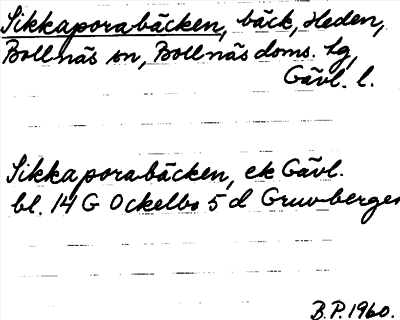 Sikkaporabäcken, bäck, Heden,
Bollnäs sn, Bollnäs doms. lg,
Gävl. l.
Sikkaporabäcken, ek Gävl.
bl. 14 G Ockelbo 5 d Gruvbergen
B.P. 1960.